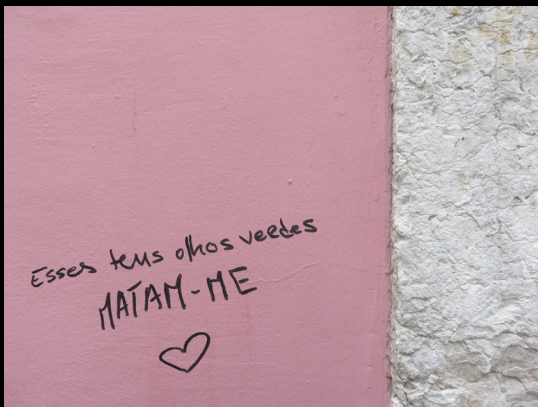 Esses teus olhos verdes
MATAM-ME